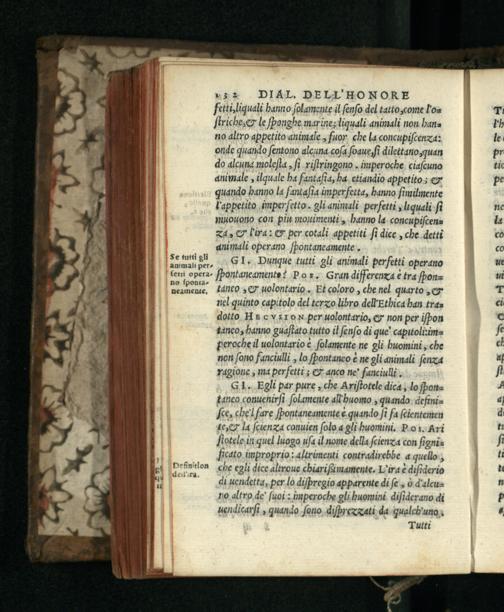 132 DIAL. DELL'HONORE
fetti, liquali hanno ſolamente il ſenſo del tatto, come l'o=
ſtriche, & le ſponghe marine; liquali animali non han=
no altro appetito animale, fuor che la concupiſcenza:
onde quando ſentono alcuna coſa ſoaue, ſi dilettano, quan
do alcuna moleſta, ſi riſtringono. imperoche ciaſcuno
animale, ilquale ha fantaſia, ha etiandio appetito; &
quando hanno la fantaſia imperfetta, hanno ſimilmente
l'appetito imperfetto. gli animali perfetti, liquali ſi
muouono con piu mouimenti, hanno la concupiſcen=
za, & l'ira: & per cotali appetiti ſi dice, che detti
animali operano ſpontaneamente.
GI. Dunque tutti gli animali perfetti operano
ſpontaneamente? POS. Gran differenza è tra ſpon=
taneo, & uolontario. Et coloro, che nel quarto, &
nel quinto capitolo del terzo libro dell'Ethica han tra=
dotto HECVSION per uolontario, & non per iſpon
taneo, hanno guaſtato tutto il ſenſo di que' capitoli: im=
peroche il uolontario è ſolamente ne gli huomini, che
non ſono fanciulli, lo ſpontaneo è ne gli animali ſenza
ragione, ma perfetti; & anco ne' fanciulli.
GI. Egli par pure, che Ariſtotele dica, lo ſpon=
taneo conuenirſi ſolamente all'huomo, quando defini=
ſce, che'l fare ſpontaneamente è quando ſi fa ſcientemen
te, & la ſcienza conuien ſolo a gli huomini. POS. Ari
ſtotele in quel luogo uſa il nome della ſcienza con ſigni=
ficato improprio: altrimenti contradirebbe a quello,
che egli dice altroue chiarißimamente. L'ira è diſiderio
di uendetta, per lo diſpregio apparente di ſe, ò d'alcu=
no altro de' ſuoi: imperoche gli huomini diſiderano di
uendicarſi, quando ſono diſprezzati da qualch'uno.
Tutti
Se tutti gli
animali per
fetti opera
no ſponta=
neamente.
Definition
dell'ira.